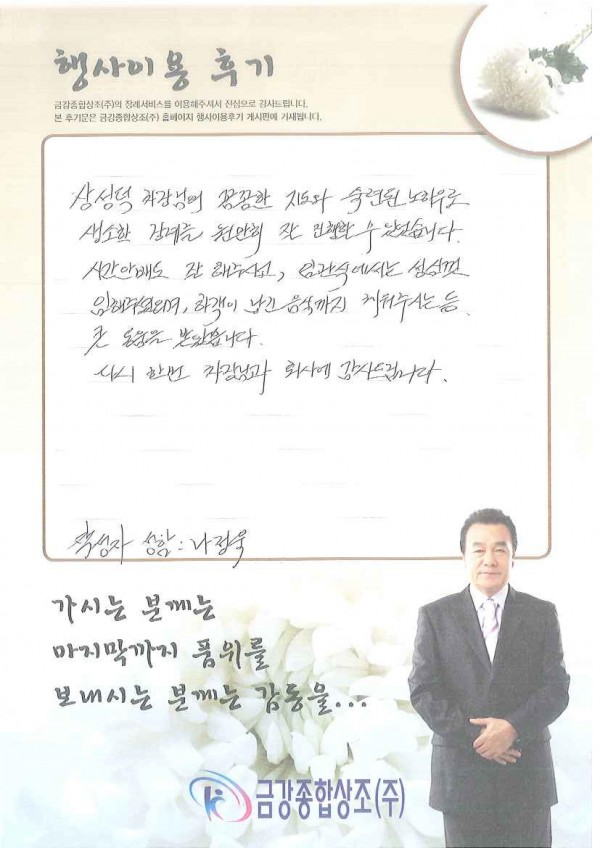 행사이용 후기
금강종합상조(주)의 장례서비스를 이용해주셔서 진심으로 감사드립니다.
본 후기문은 금강종합상조(주) 홈페이지 행사이용후기 게시판에 기재됩니다.
차장님의 꼼꼼한 지도와 숙련된 노하우로
생소한 장례를 원만히 잘 진행할 수 있었습니다.
시간안배도 잘 해주시고, 입관식에서는 성심껏
임해주셨으며, 하객이 남긴 음식까지 치워주시는 등
큰 도움을 받았습니다.
다시 한번 차장님과 회사에 감사드립니다.
작성자 성함 : 나정욱
가시는 분께는
마지막까지 품위를
보내시는 분께는 감동을...
금강종합상조(주)